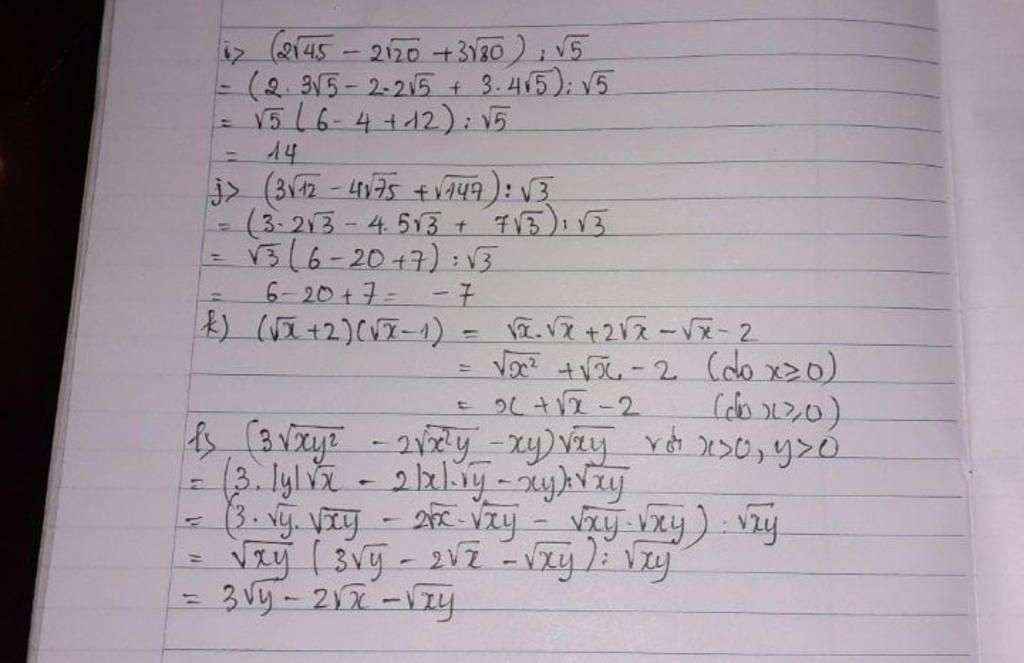 i> (2√45 - 2√20 + 3√80) : √5
= (2. 3√5 - 2.2√5 + 3.4√5) : √5
= √5 (6 - 4 + 12) : √5
= 14
j> (3√12 - 4√75 + √147) : √3
= (3.2√3 - 4.5√3 + 7√3) : √3
= √3 (6 - 20 + 7) : √3
= 6 - 20 + 7 = -7
k) (√x + 2)(√x - 1) = √x.√x + 2√x - √x - 2
= √x² + √x - 2 (do x ≥ 0)
= x + √x - 2 (do x ≥ 0)
l> (3√xy² - 2√x²y - xy) √xy với x>0, y>0
= (3.|y|√x - 2|x|.√y - xy) : √xy
= (3.√y.√xy - 2√x.√xy - √xy.√xy) : √xy
= √xy (3√y - 2√x - √xy) : √xy
= 3√y - 2√x - √xy